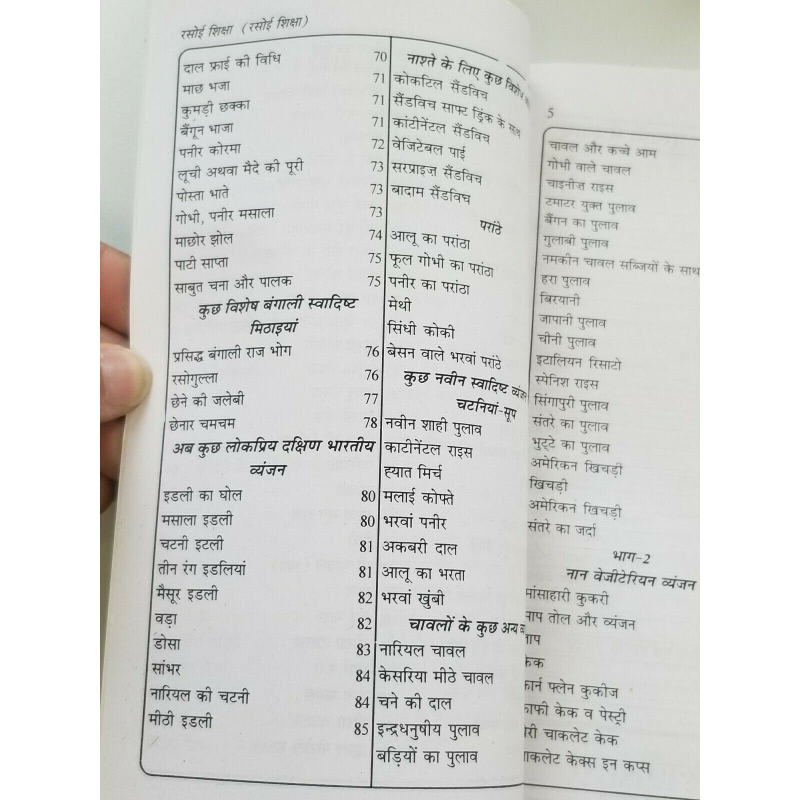 रसोई शिक्षा (रसोई शिक्षा)
दाल फ्राई की विधि 70
माछ भजा 71
कुमड़ी छक्का 71
बैंगून भाजा 71
पनीर कोरमा 72
लूची अथवा मैदे की पूरी 73
पोस्ता भाते 73
गोभी, पनीर मसाला 73
माछोर झोल 74
पाटी साप्ता 75
साबुत चना और पालक 75
कुछ विशेष बंगाली स्वादिष्ट
मिठाइयां
प्रसिद्ध बंगाली राज भोग 76
रसोगुल्ला 76
छेने की जलेबी 77
छेनार चमचम 78
अब कुछ लोकप्रिय दक्षिण भारतीय
व्यंजन
इडली का घोल 80
मसाला इडली 80
चटनी इटली 81
तीन रंग इडलियां 81
मैसूर इडली 82
वड़ा 82
डोसा 83
सांभर 84
नारियल की चटनी 84
मीठी इडली 85
नाश्ते के लिए कुछ विशेष
कोकटिल सैंडविच
सैंडविच साफ्ट ड्रिंक के साथ
कांटीनेंटल सैंडविच
वेजिटेबल पाई
सरप्राइज़ सैंडविच
बादाम सैंडविच
परांठे
आलू का परांठा
फूल गोभी का परांठा
पनीर का परांठा
मेथी
सिंधी कोकी
बेसन वाले भरवां परांठे
कुछ नवीन स्वादिष्ट
चटनियां-सूप
नवीन शाही पुलाव
काटीनेंटल राइस
ह्यात मिर्च
मलाई कोफ्ते
भरवां पनीर
अकबरी दाल
आलू का भरता
भरवां खुंबी
चावलों के कुछ अन्य
नारियल चावल
केसरिया मीठे चावल
चने की दाल
इन्द्रधनुषीय पुलाव
बड़ियों का पुलाव
5
चावल और कच्चे आम
गोभी वाले चावल
चाइनीज़ राइस
टमाटर युक्त पुलाव
बैंगन का पुलाव
गुलाबी पुलाव
नमकीन चावल सब्जियों के साथ
हरा पुलाव
बिरयानी
जापानी पुलाव
चीनी पुलाव
इटालियन रिसाटो
स्पेनिश राइस
सिंगापुरी पुलाव
संतरे का पुलाव
भुट्टे का पुलाव
अमेरिकन खिचड़ी
खिचड़ी
अमेरिकन खिचड़ी
संतरे का जर्दा
भाग-2
नान वेजीटेरियन व्यंजन
मांसाहारी कुकरी
तोल और व्यंजन
फ्लेन कुकीज
केक व पेस्ट्री
चाकलेट केक
केक्स इन कप्स